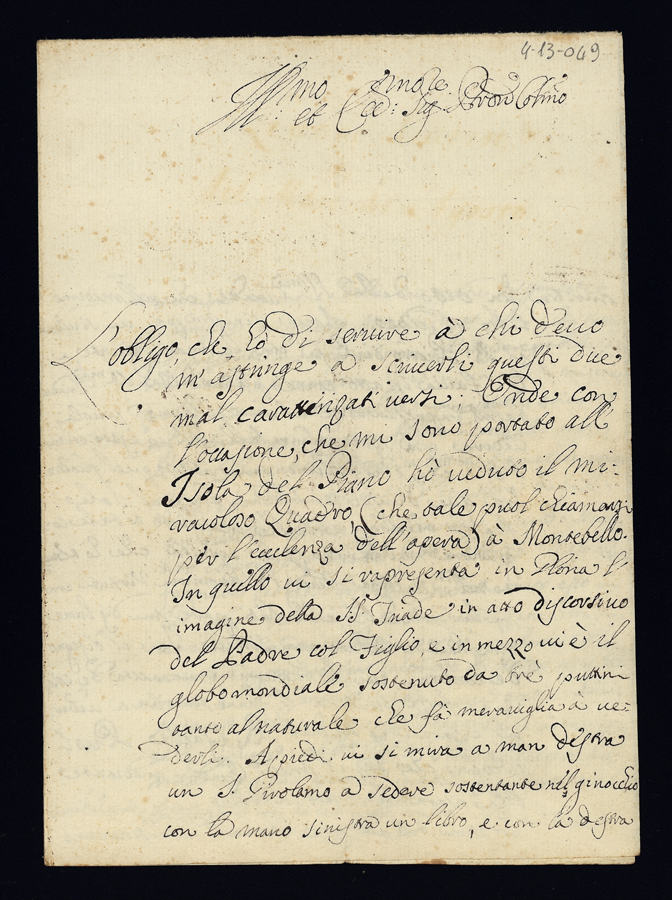 4-13-049
Ill.mo
et Ecc: Sig
L'obligo, che hò di servire à chi devo
m'astringe a scriverli questi due
mal caratterizati versi. Onde con
l'occasione, che mi sono portato all'
Isola del Piano hò veduto il mi-
racoloso Quadro, (che tale puol chiamarsi
per l'eccelenza dell'opera) à Montebello.
In quello vi si rapresenta in Gloria l'
imagine della SS. Triade in atto discorsivo
del Padre col Figlio, e in mezzo vi è il
globo mondiale sostenuto da trè puttini
tanto al naturale che fà meraviglia à ve-
derli. A piedi vi si mira a man destra
un S. Girolamo a sedere sostentante nel ginocchio
con la mano sinistra un libro, e con la destra